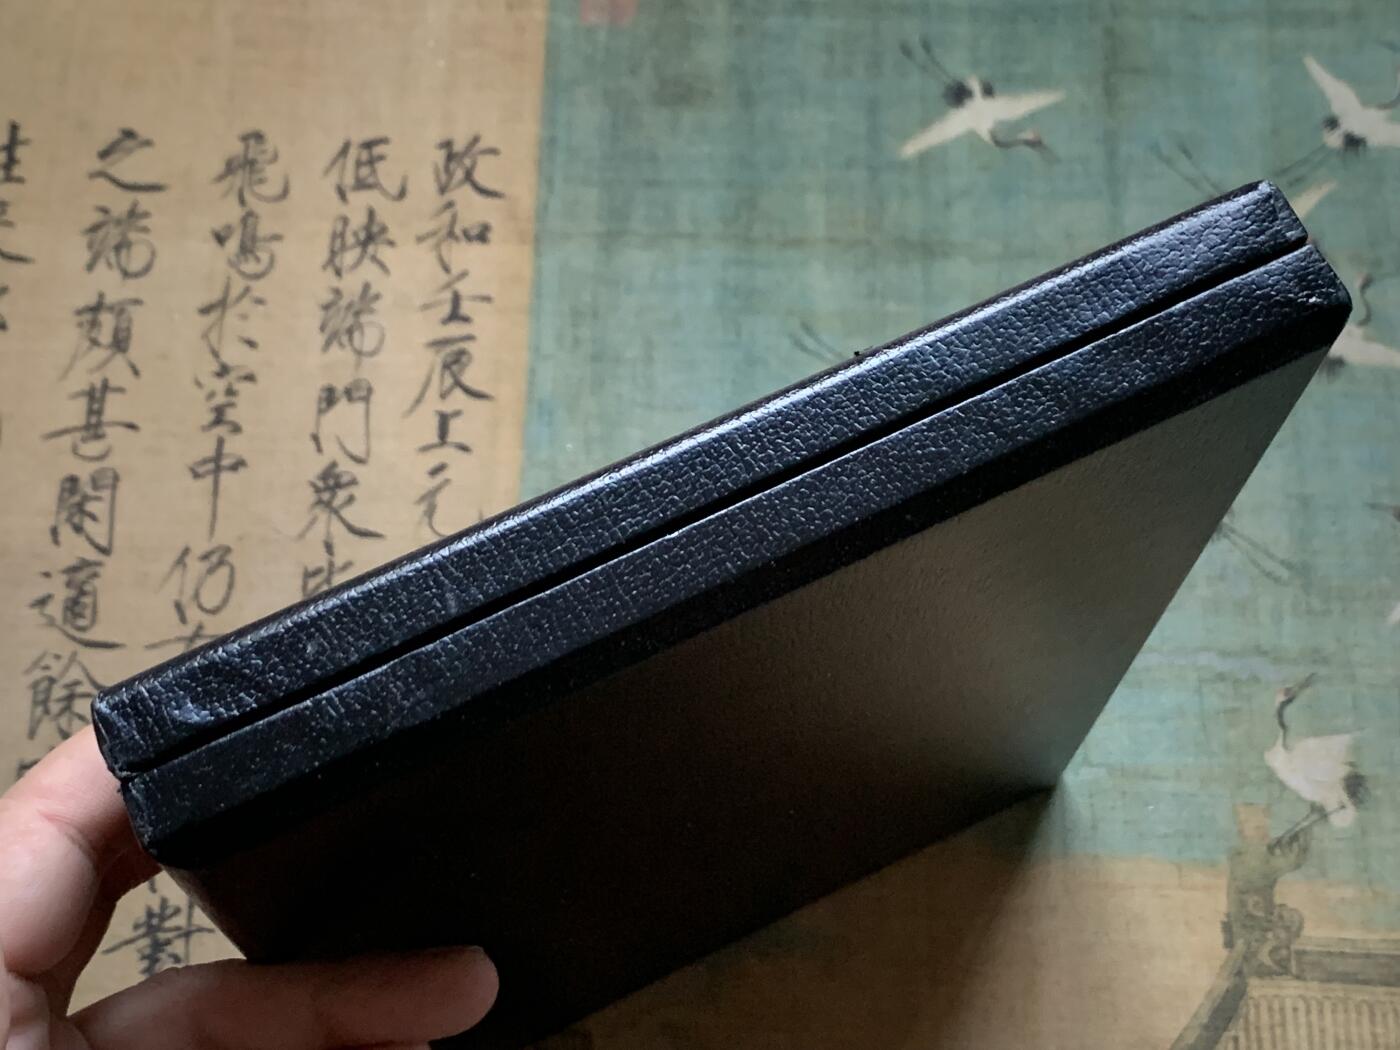 政和壬辰上元
低映端門衆
飛鳴於空中仍
之端頗甚閑適餘
對